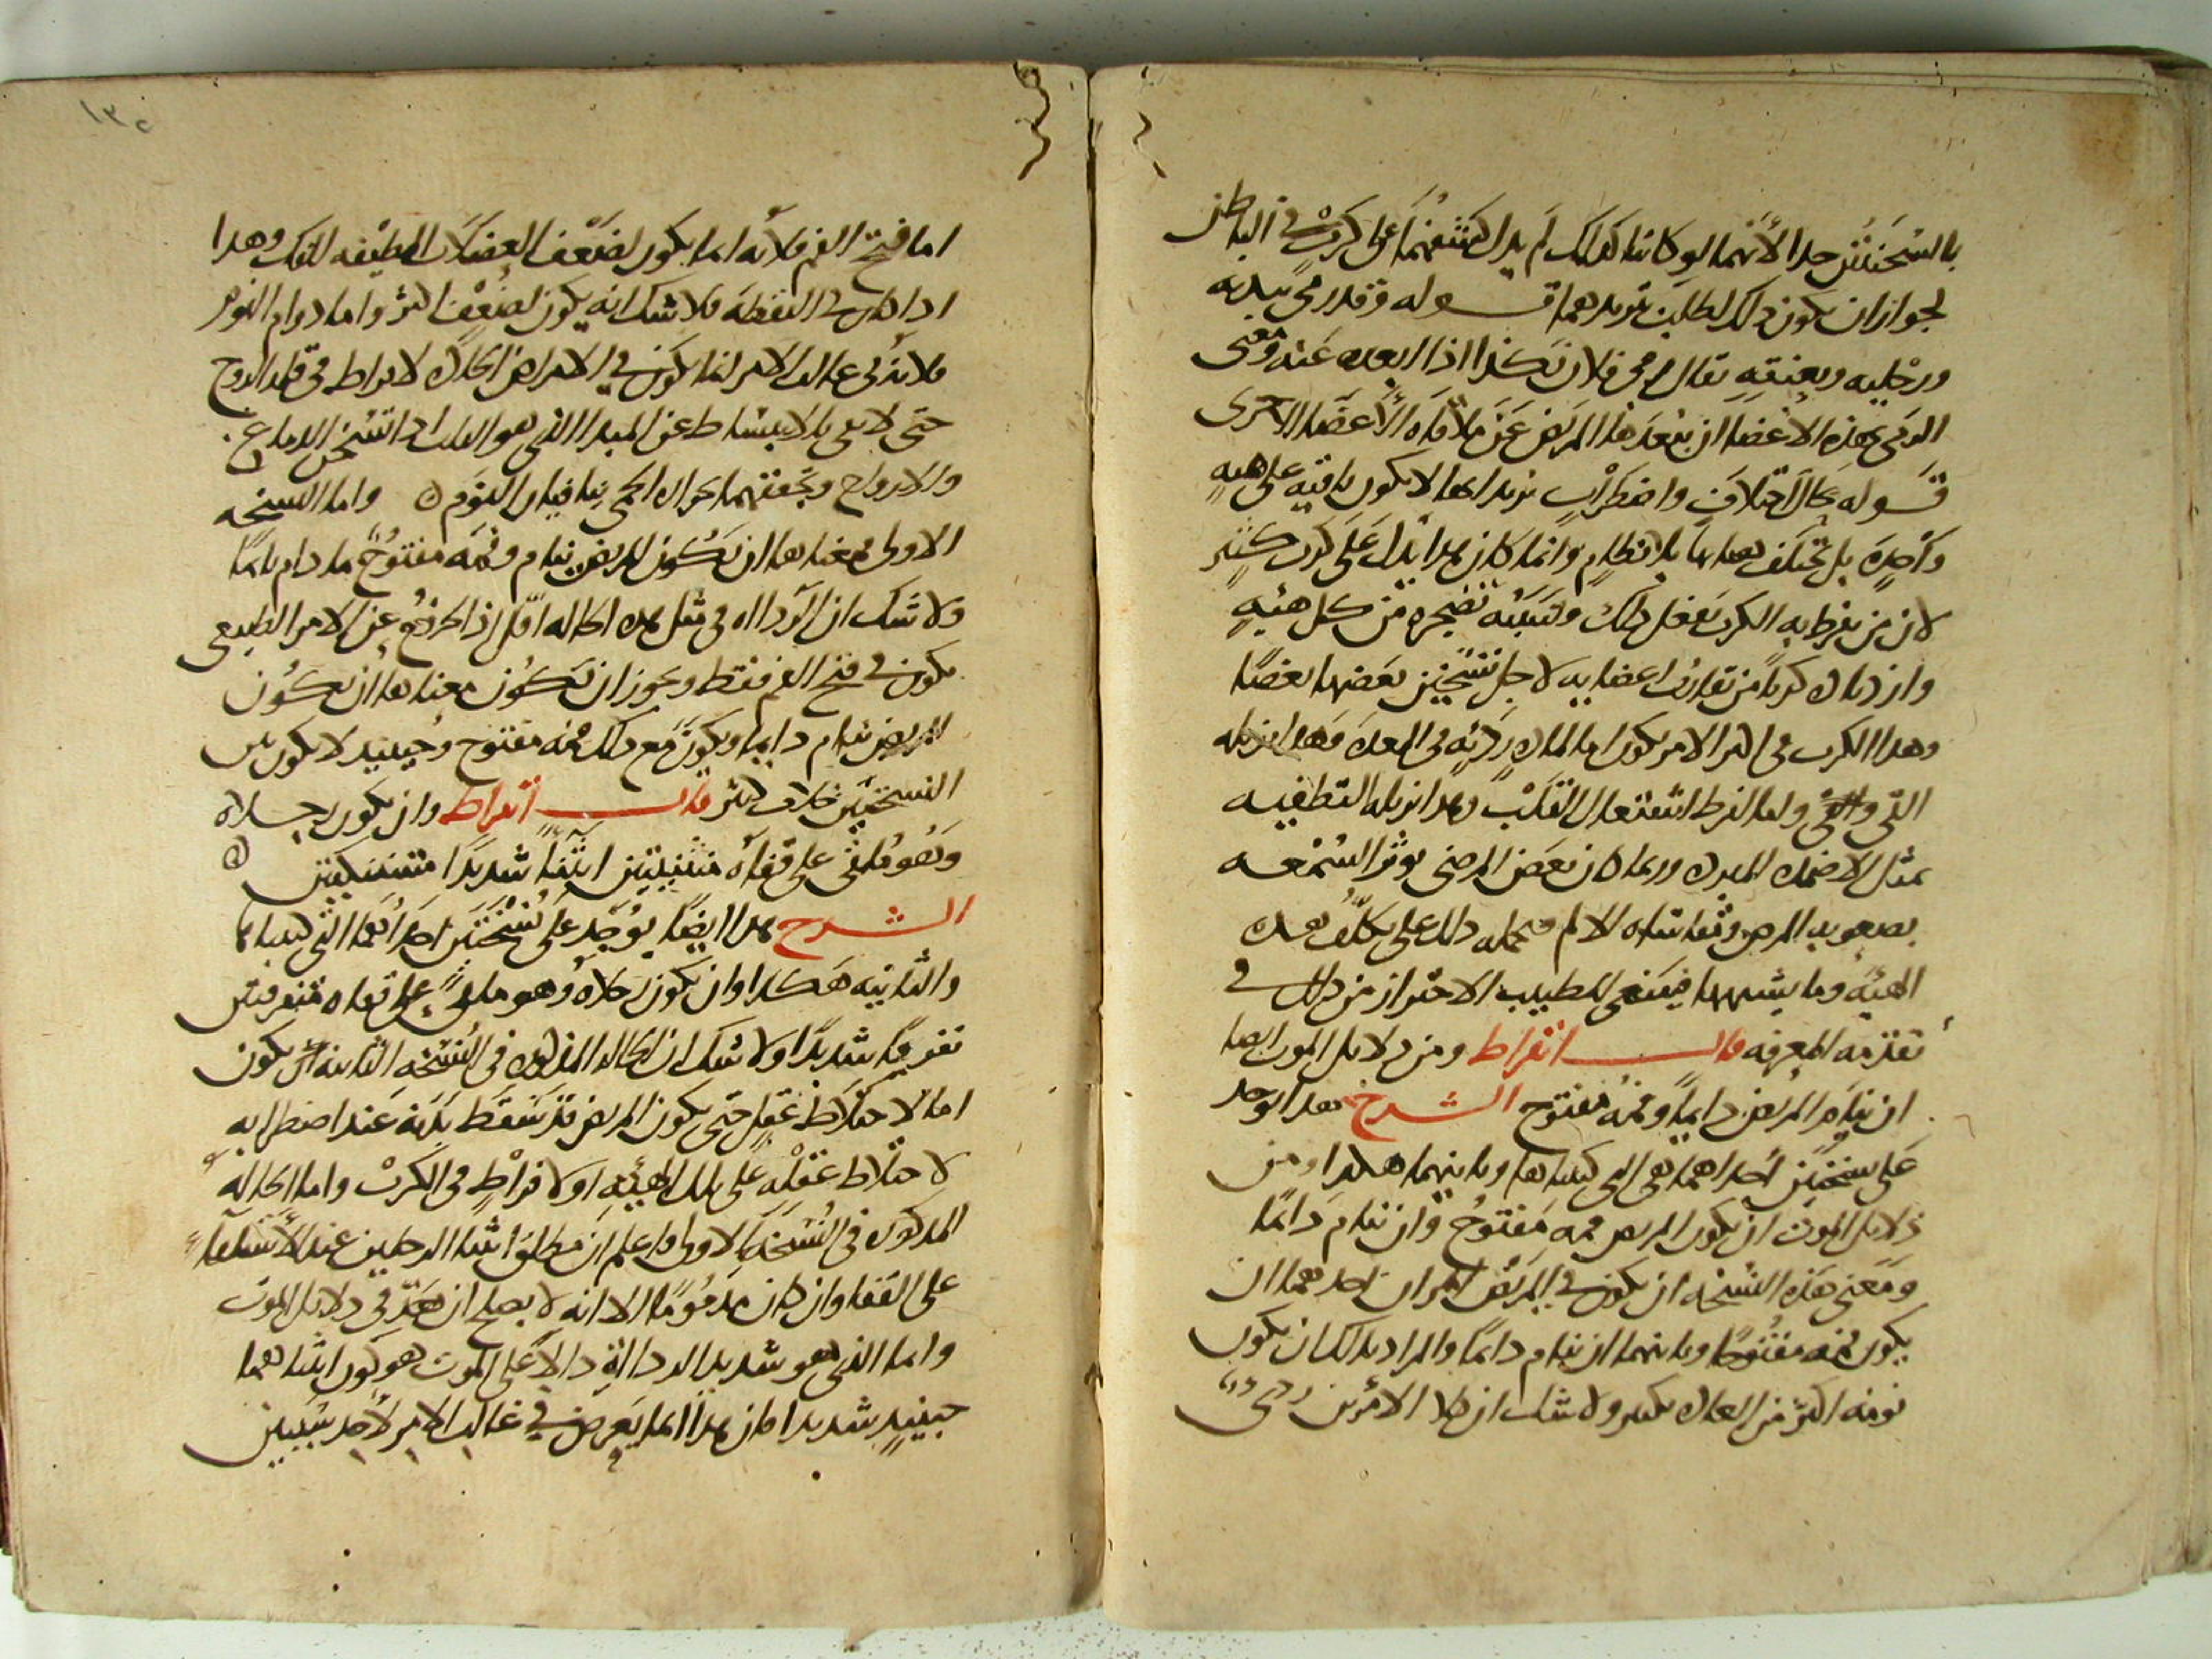 بالسخنتين جدا لأنهما لو كانتا كذلك لم يدل كشفهما على كرب في الباطن
لجواز ان يكون ذلك لطلب تبريدهما قوله وقد رمى بيديه
ورجليه وبعنقه يقال رمى فلان بكذا اذا ابعده عنه ومعنى
الرمى بهذه الاعضا ان يبعدها المريض عن ملاقاه الاعضا الاخرى
قوله بحال اختلاف واضطراب يريد انها لا يكون باقيه على هيه
واحده بل تختلف هياتها بلا نظام وانما كان هدا يدل على كرب كثير
لان من يفرط به الكرب يفعل ذلك وسببه تضجره من كل هيه
وازدياد كربه من تقارب اعضايه لاجل تسخين بعضها بعضا
وهدا الكرب فى اكثر الامر يكون اما لماده رديه فى المعده وهدا يزيله
القى واما لفرط اشتعال القلب وهدا يزيله التطفيه
بمثل الاضمده المبرده وربما كان بعض المرضى يوثر السمعه
بصعوبه المرض ومقاساه الالم فيحمله ذلك على تكلف هده
الهيه وما يشبهها فينبغى للطبيب الاحتراز من ذلك فى
تقدمه المعرفه قال ابقراط ومن دلايل الموت ايضا
ان ينام المريض دايما وفمه مفتوح الشرح هدا يوجد
على نسختين احداهما هى التى كتبناها وثانيتهما هكدا ومن
دلايل الموت ان يكون المريض فمه مفتوح وان ينام دايما
ومعنى هذه النسخه ان يكون فى المريض امران احدهما ان
يكون فمه مفتوحا وثانيهما ان ينام دايما والمراد بذلك ان يكون
نومه اكثر من العاده بكثير ولا شك ان كلا الامرين ردى
اما فتح الفم فلانه اما يكون لضعف العضلات المطبقه للفك وهدا
ادا كان فى اليقظه فلا شك انه يكون لضعف كثير واما دوام النوم
فلانه فى غالب الامر انما يكون فى الامراض الحاده لافراط فى قله الروح
حتى لا يفى بالانبساط عن المبدا الذى هو القلب ادا تسخن الدماغ
والارواح وتجففهما بحراره الحمى ينافيان النوم ه واما النسخه
الاولى فمعناها ان يكون المريض ينام وفمه مفتوح ما دام نايما
ولا شك ان الرداه فى مثل هده الحاله اقل اذ الخروج عن الامر الطبيعى
يكون فى فتح الفم فقط ويجوز ان يكون معناها ان يكون
المريض ينام دايما ويكون مع ذلك فمه مفتوح وحينيد لا يكون بين
النسختين خلاف كثير قال ابقراط وان يكون رجلاه
وهو ملقى على قفاه منثنيتين انثنا شديدا متشبكتين ه
الشرح هدا ايضا يوجد على نسختين احداهما التى كتبناها
والثانيه هكدا وان يكون رجلاه وهو ملقى على قفاه متفرقتين
تفريقا شديدا ولا شك ان الحاله المذكوره فى النسخه الثانيه ان يكون
اما لاختلاط عقل حتى يكون المريض قد سقط بدنه عند اضطرابه
لاختلاط عقله على تلك الهيه او لافراط فى الكرب واما الحاله
المدكوره فى النسخه الاولى واعلم ان مطلق انثنا الرجلين عند الاستلقا
على القفا وان كان مدموما الا انه لا يصلح ان يعد فى دلايل الموت
واما الذى هو شديد الرداه دالا على الموت هو كون انثناهما
حينيد شديدا فان هدا انما يعرض فى غالب الامر لاحد سببين